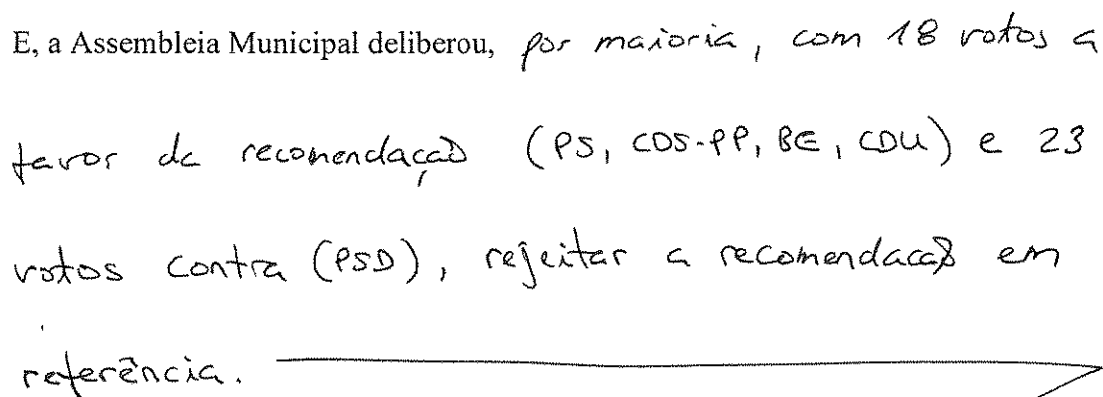 E, a Assembleia Municipal deliberou, por maioria, com 18 votos a
favor da recomendação (PS, CDS-PP, BE, CDU) e 23
votos contra (PSD), rejeitar a recomendação em
referência.